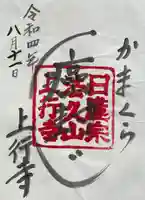 かまくら
日蓮宗
法久山
上行寺
上行寺
令和四年
八月十一日